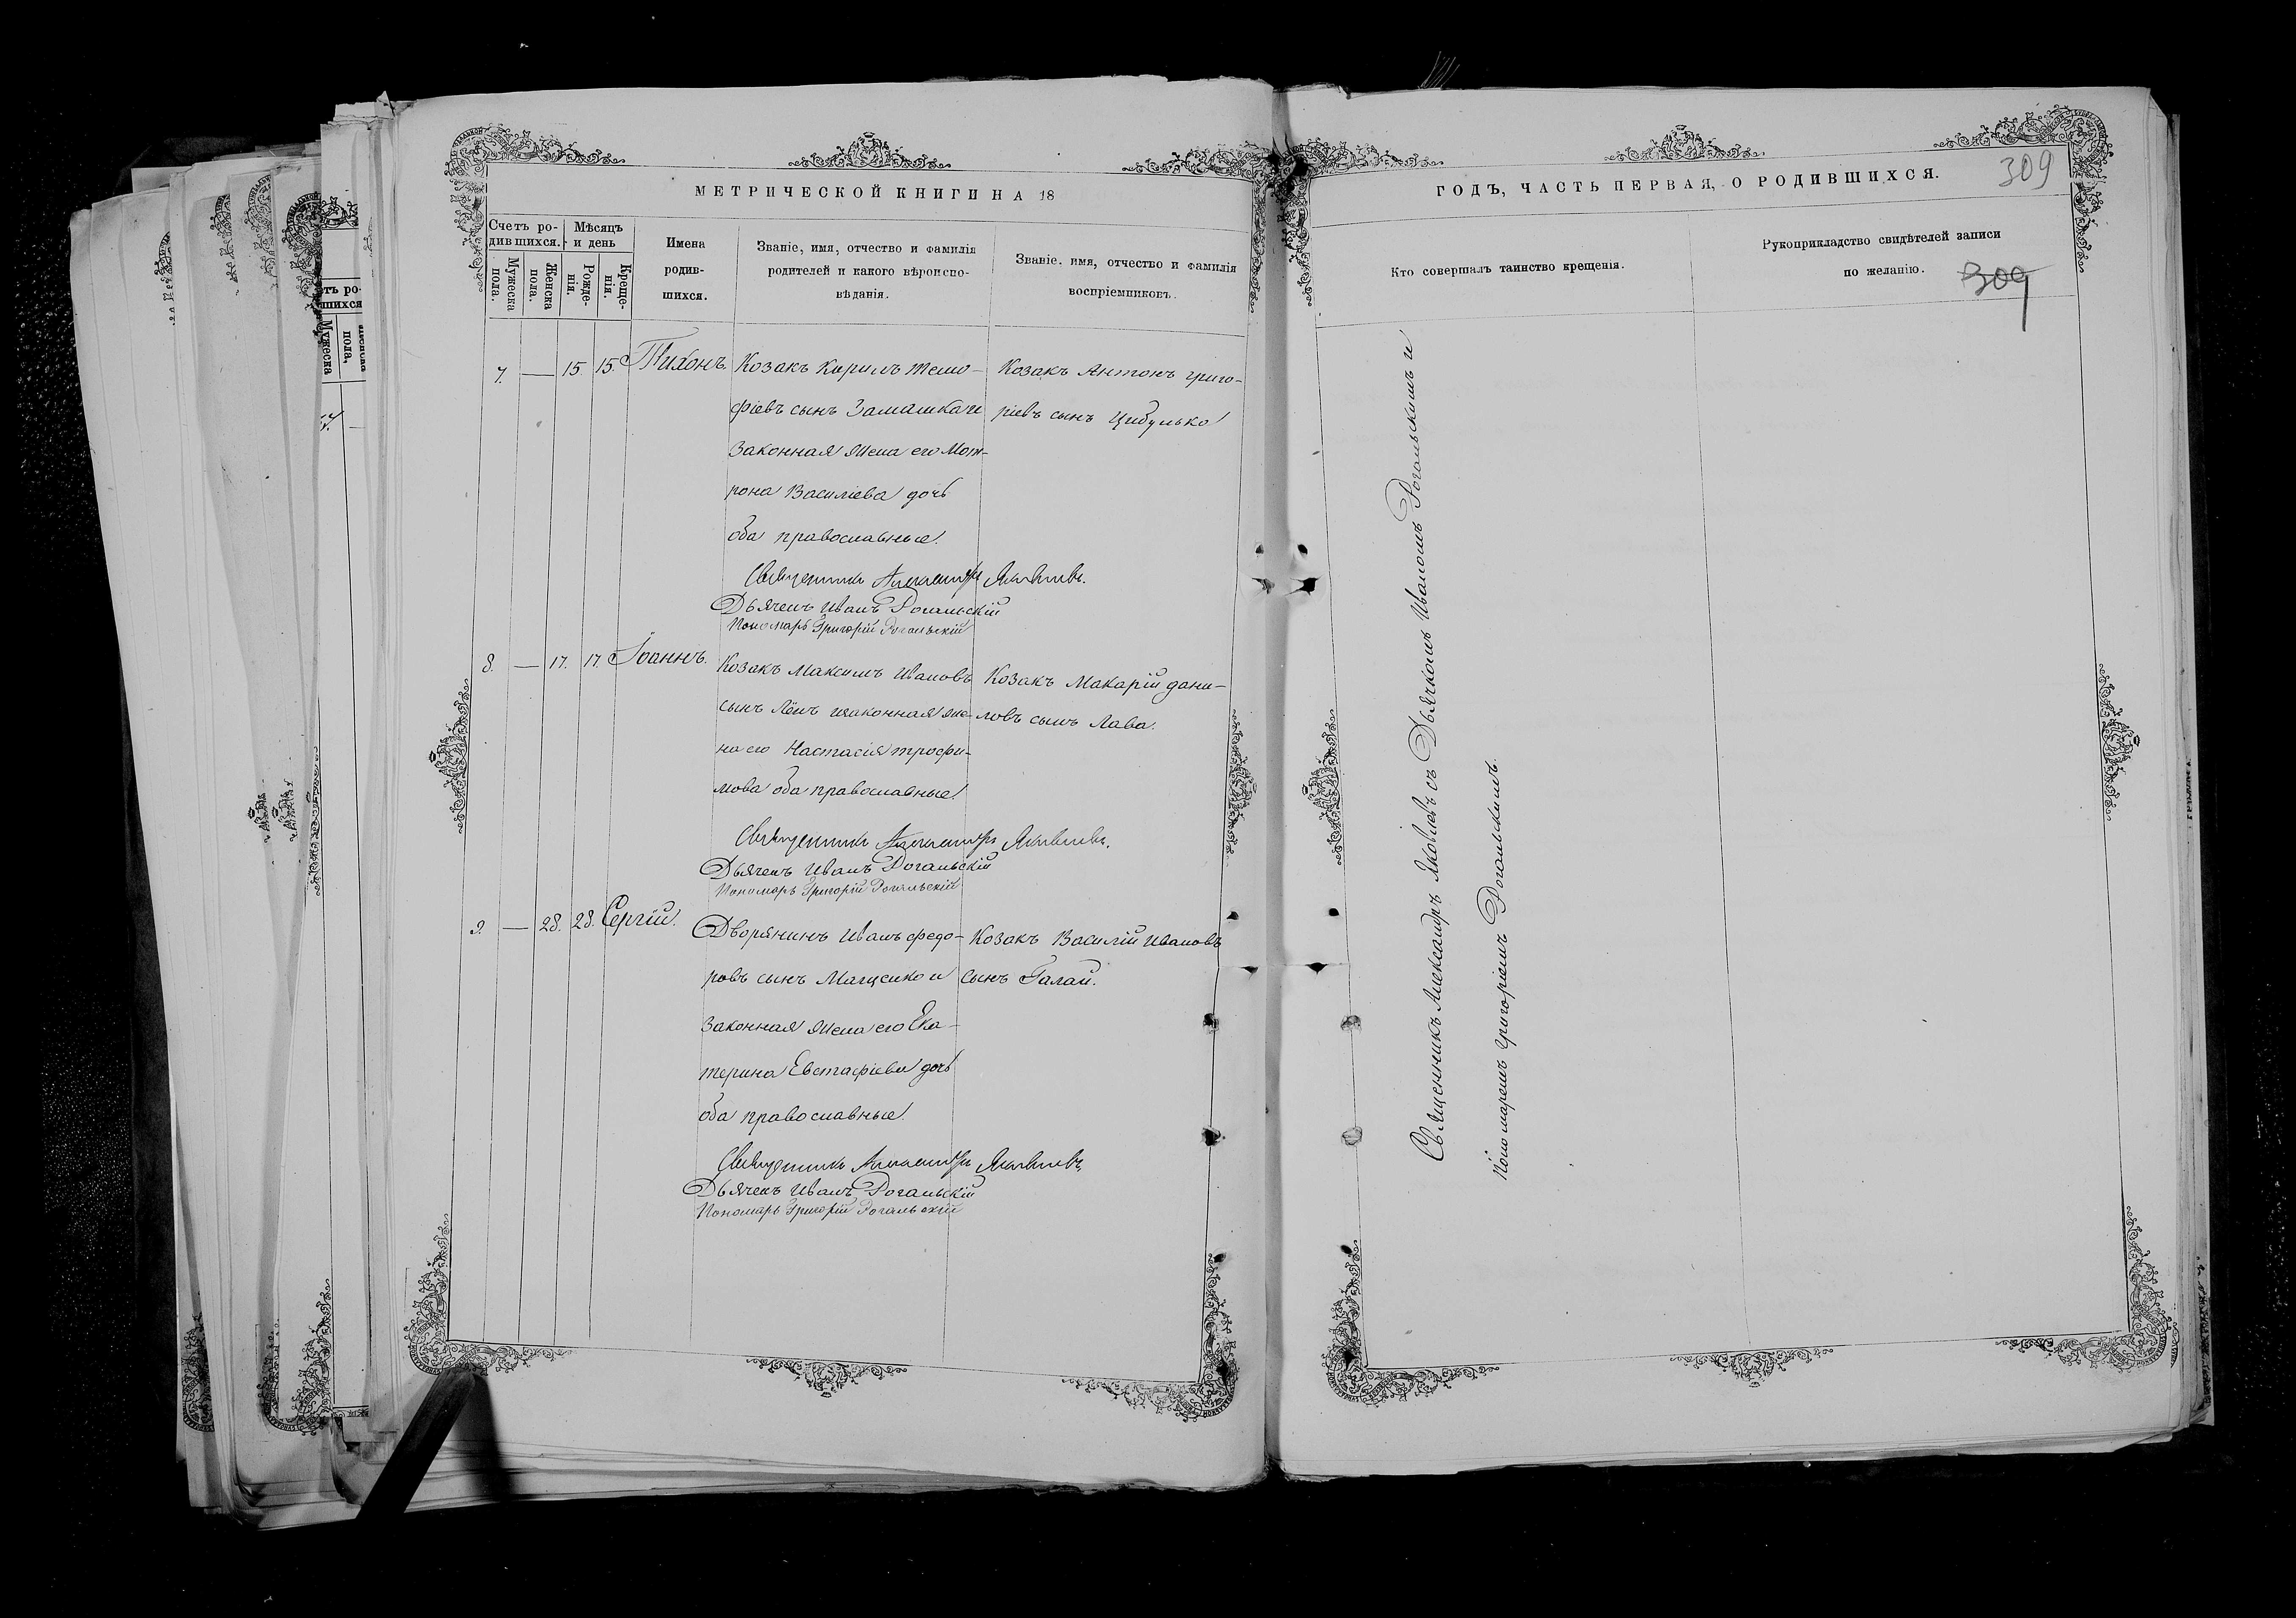 МЕТРИЧЕСКОЙ КНИГИ НА 18
Счетъ ро-
дившихся.
Мѣсяцъ
и день
Мужеска
пола.
Женска
пола.
Рожде-
нія.
Креще-
нія.
Имена
родив-
шихся.
Званіе, имя, отчество и фамилія
родителей и какого вѣроиспо-
вѣданія.
Званіе, имя, отчество и фамилія
воспріемниковъ.
7. — 15 15. Тихонъ.
Козакъ Кирилъ Тимо-
фіевъ сынъ Замашка и
законная жена его Мот-
рона Василіева дочь
оба православные.
Козакъ Антонъ Григо-
ріевъ сынъ Цибулько
Священникъ Александръ Яковлевъ.
Дьячекъ Иванъ Рогальскій
Пономарь Григорій Рогальскій
8. — 17. 17. Іоаннъ.
Козакъ Максимъ Ивановъ
сынъ и законная же-
на его Настасія Трофи-
мова оба православные.
Козакъ Макарій Дани-
ловъ сынъ Лава.
Священникъ Александръ Яковлевъ.
Дьячекъ Иванъ Рогальскій
Пономарь Григорій Рогальскій
9. — 28. 28. Сергій.
Дворянинъ Иванъ Федо-
ровъ сынъ и
законная жена его Ека-
терина Евстафіева дочь
оба православные.
Козакъ Василій Ивановъ
сынъ Галай.
Священникъ Александръ Яковлевъ
Дьячекъ Иванъ Рогальскій
Пономарь Григорій Рогальскій
ГОДЪ, ЧАСТЬ ПЕРВАЯ, О РОДИВШИХСЯ.
309
Кто совершалъ таинство крещенія.
Рукоприкладство свидѣтелей записи
по желанію.
309
Священникъ Александръ Яковлевъ съ Дьячкомъ Иваномъ Рогальскимъ и
Пономаремъ Григоріемъ Рогальскимъ.